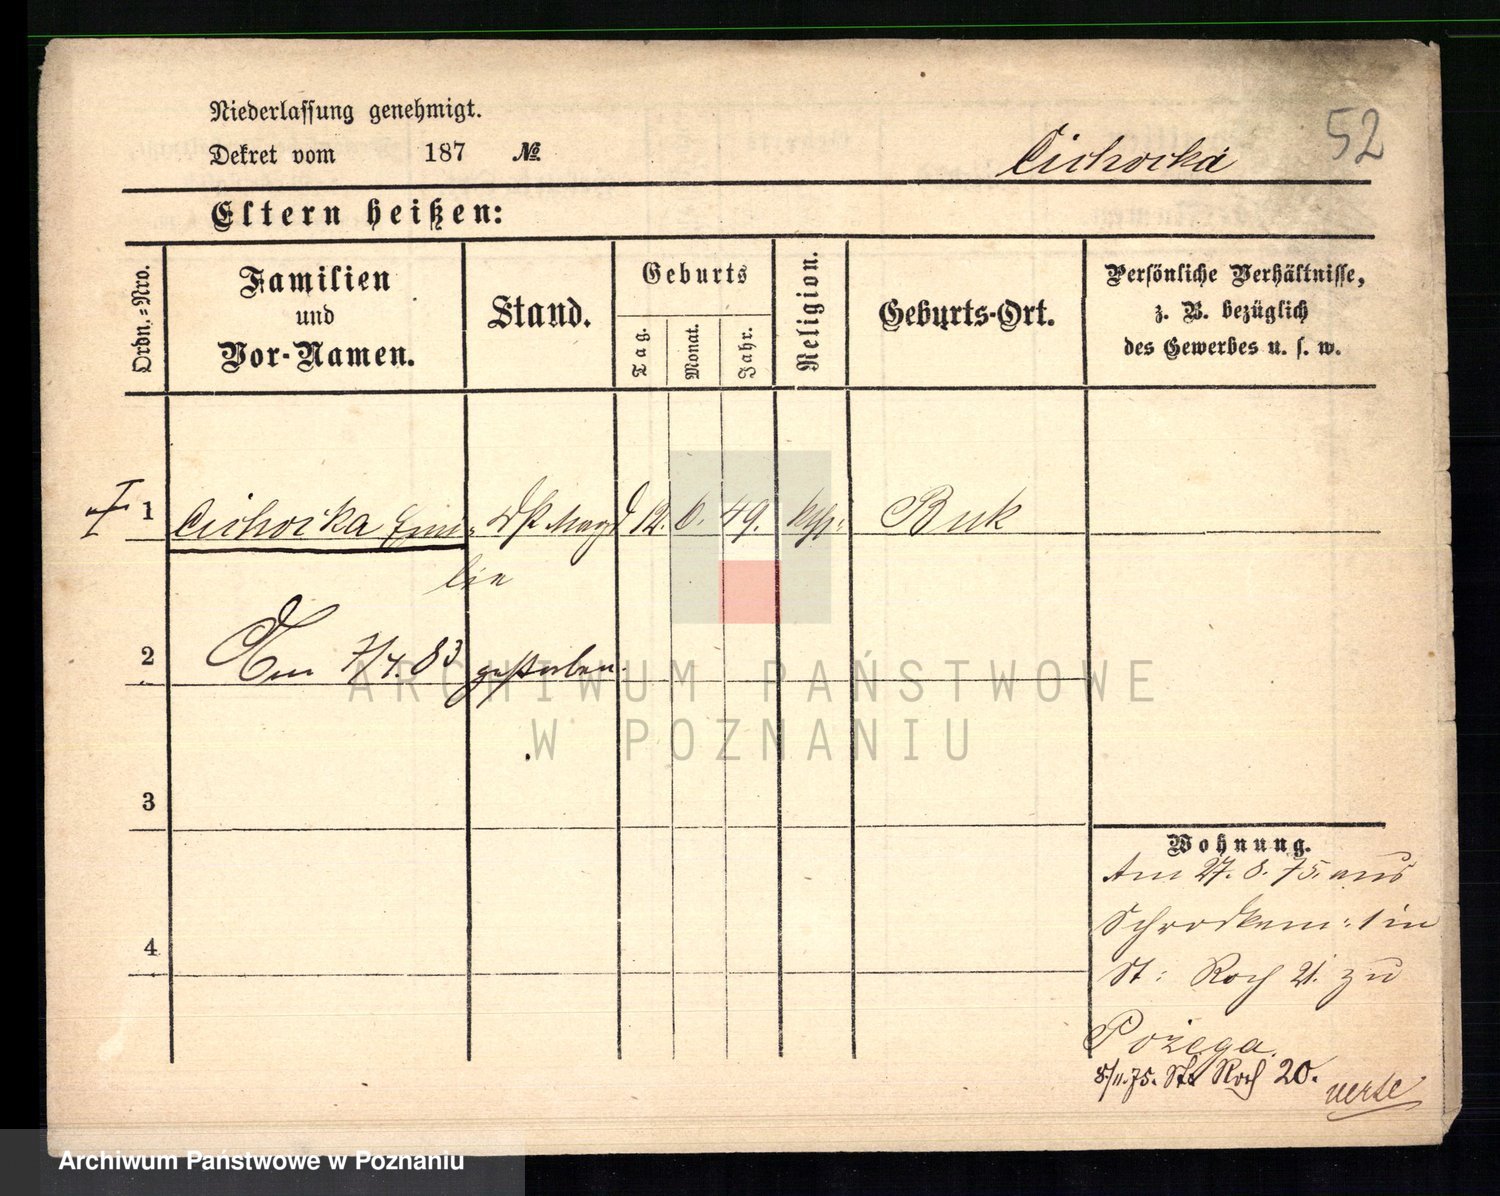 Niederlassung genehmigt.
Dekret vom 187 №
Cichocka
52
Eltern heißen:
Ordn.-Nro.
Familien
und
Vor-Namen.
Stand.
Geburts
Tag.
Monat.
Jahr.
Religion.
Geburts-Ort.
Persönliche Verhältnisse,
z. B. bezüglich
des Gewerbes u. s. w.
1 Cichocka Emi- Magd 12. 6. 49. kth: Buk
lie
2 Am 7/4.83 gestorben.
3
4
Wohnung.
Am 27.8.75. aus
in
St: Roch 21. zu
Pożega.
8/11.75. St. Roch 20.
verte
ARCHIWUM PAŃSTWOWE
W POZNANIU
Archiwum Państwowe w Poznaniu